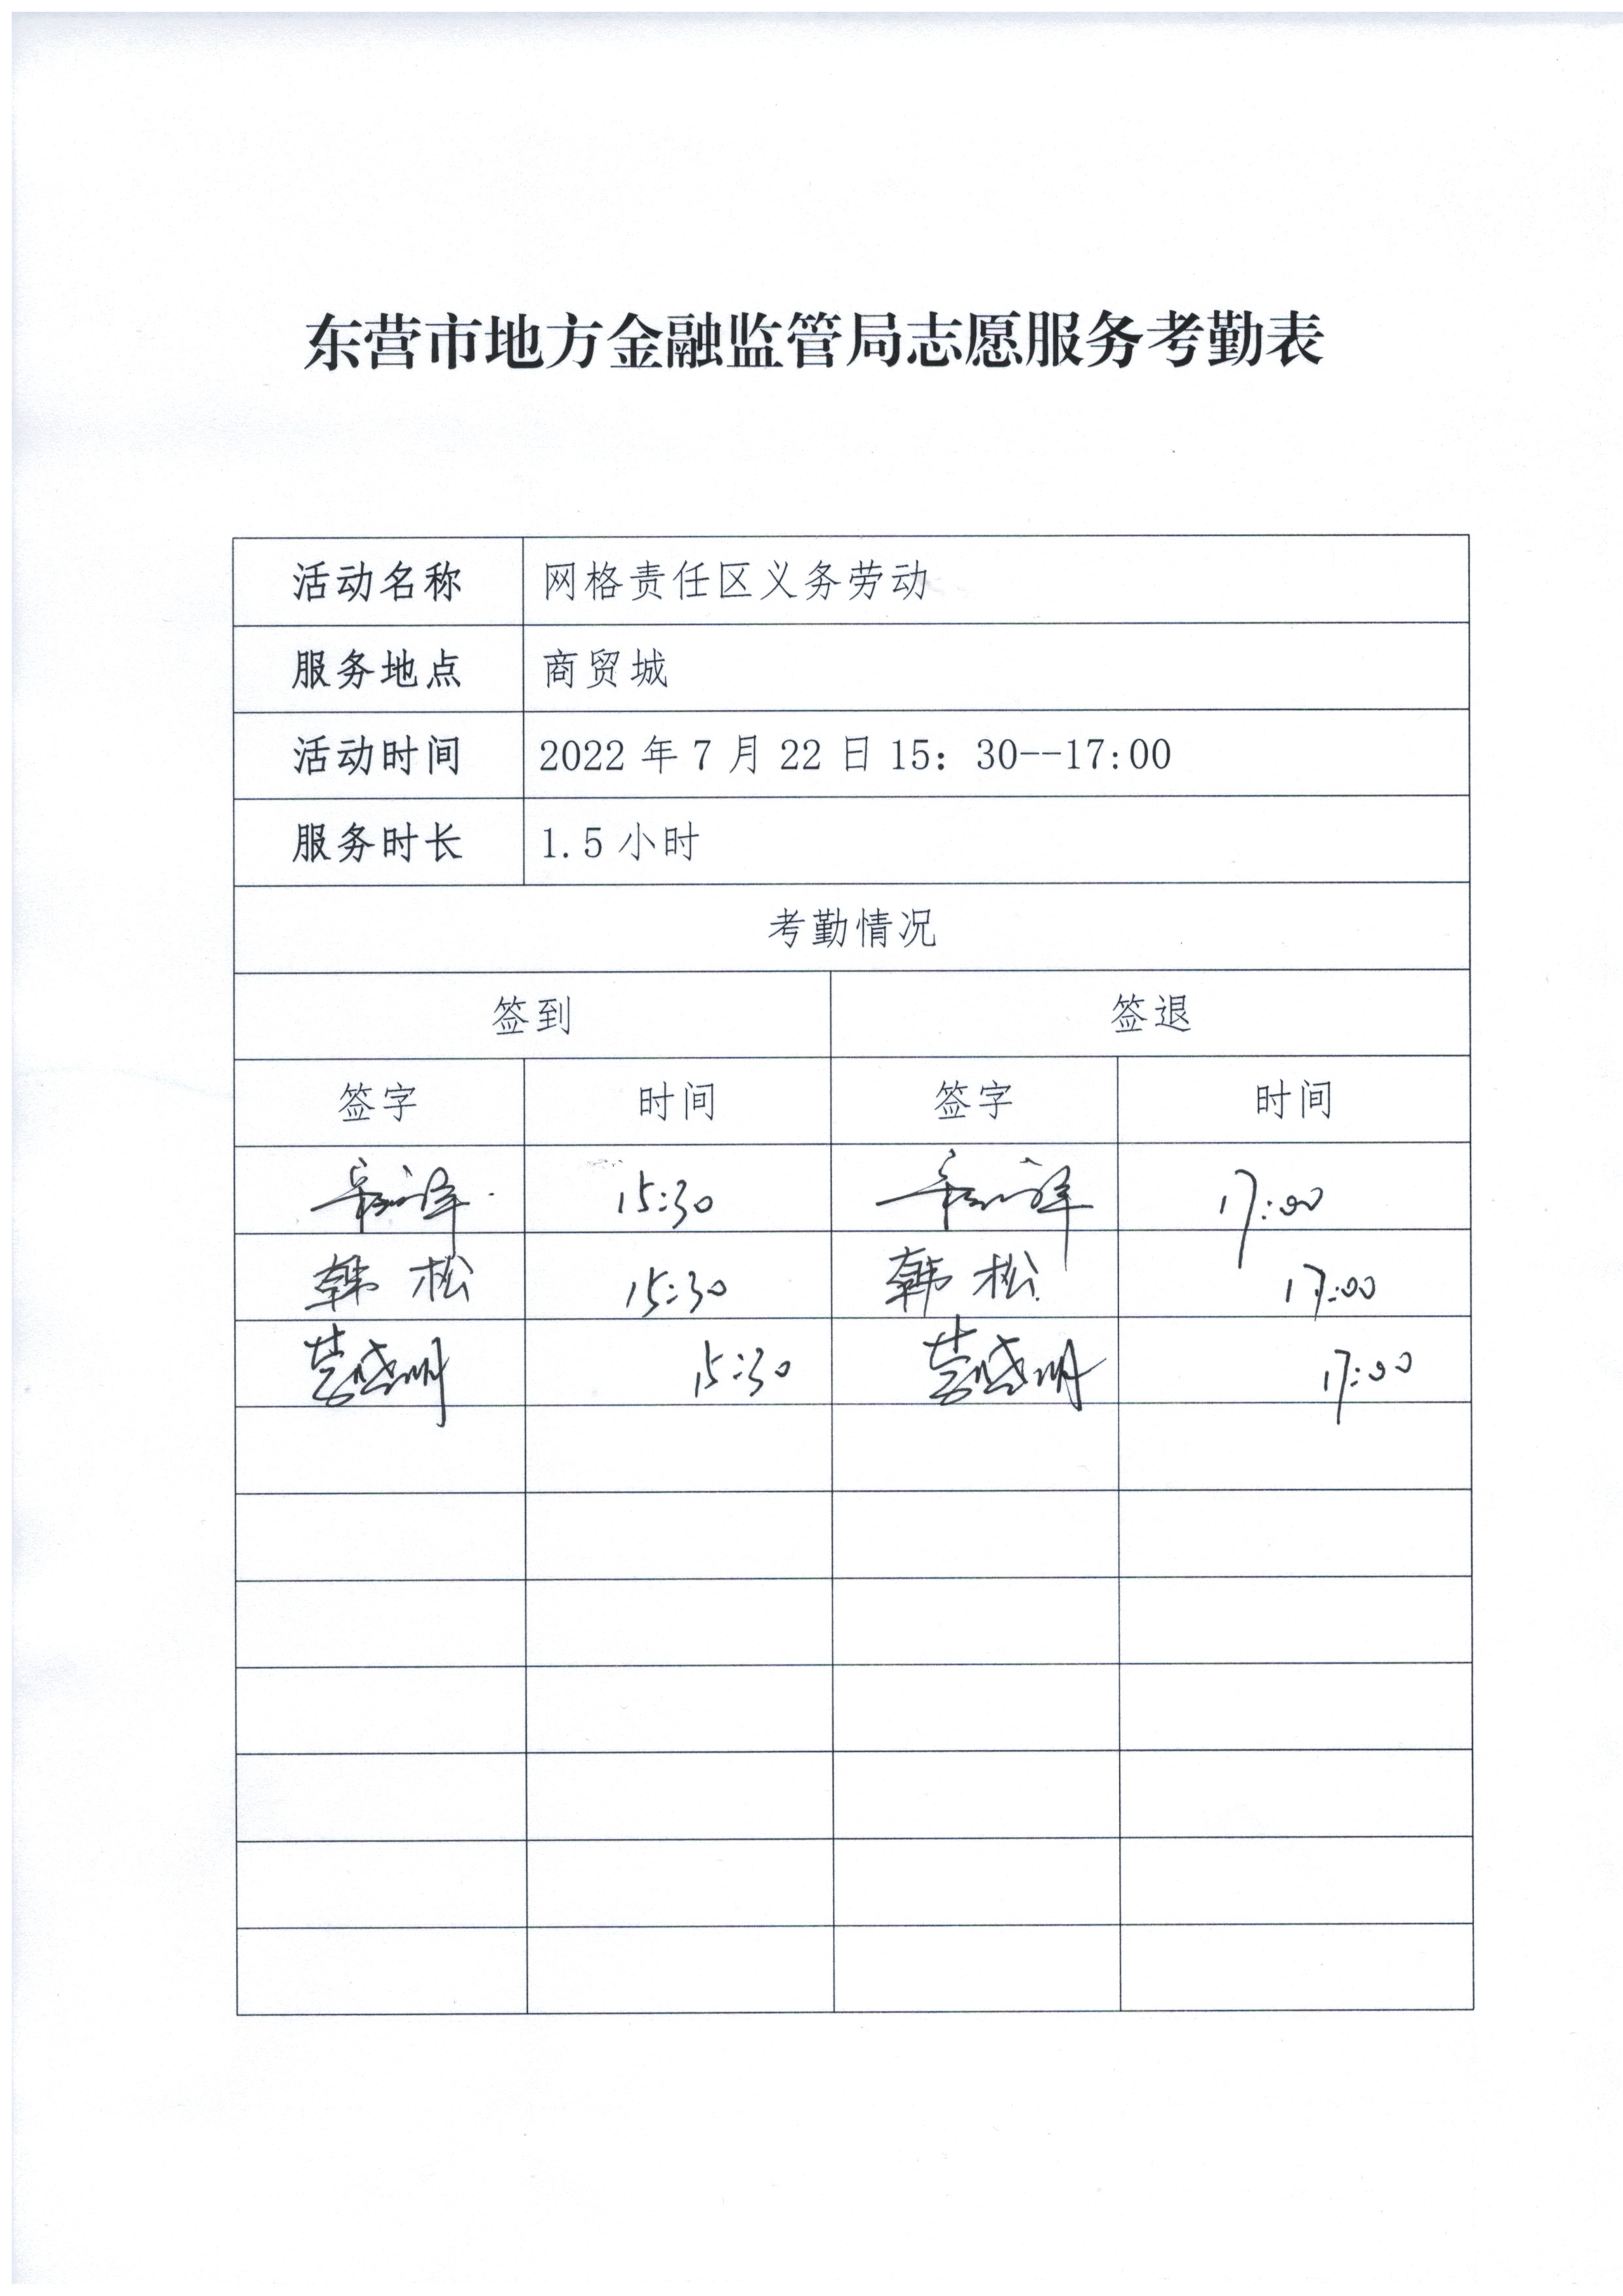 东营市地方金融监管局志愿服务考勤表
活动名称 网格责任区义务劳动
服务地点 商贸城
活动时间 2022年7月22日15：30--17:00
服务时长 1.5小时
考勤情况
签到 签退
签字 时间 签字 时间
15:30 17:00
韩松 15:30 韩松 17:00
15:30 17:00